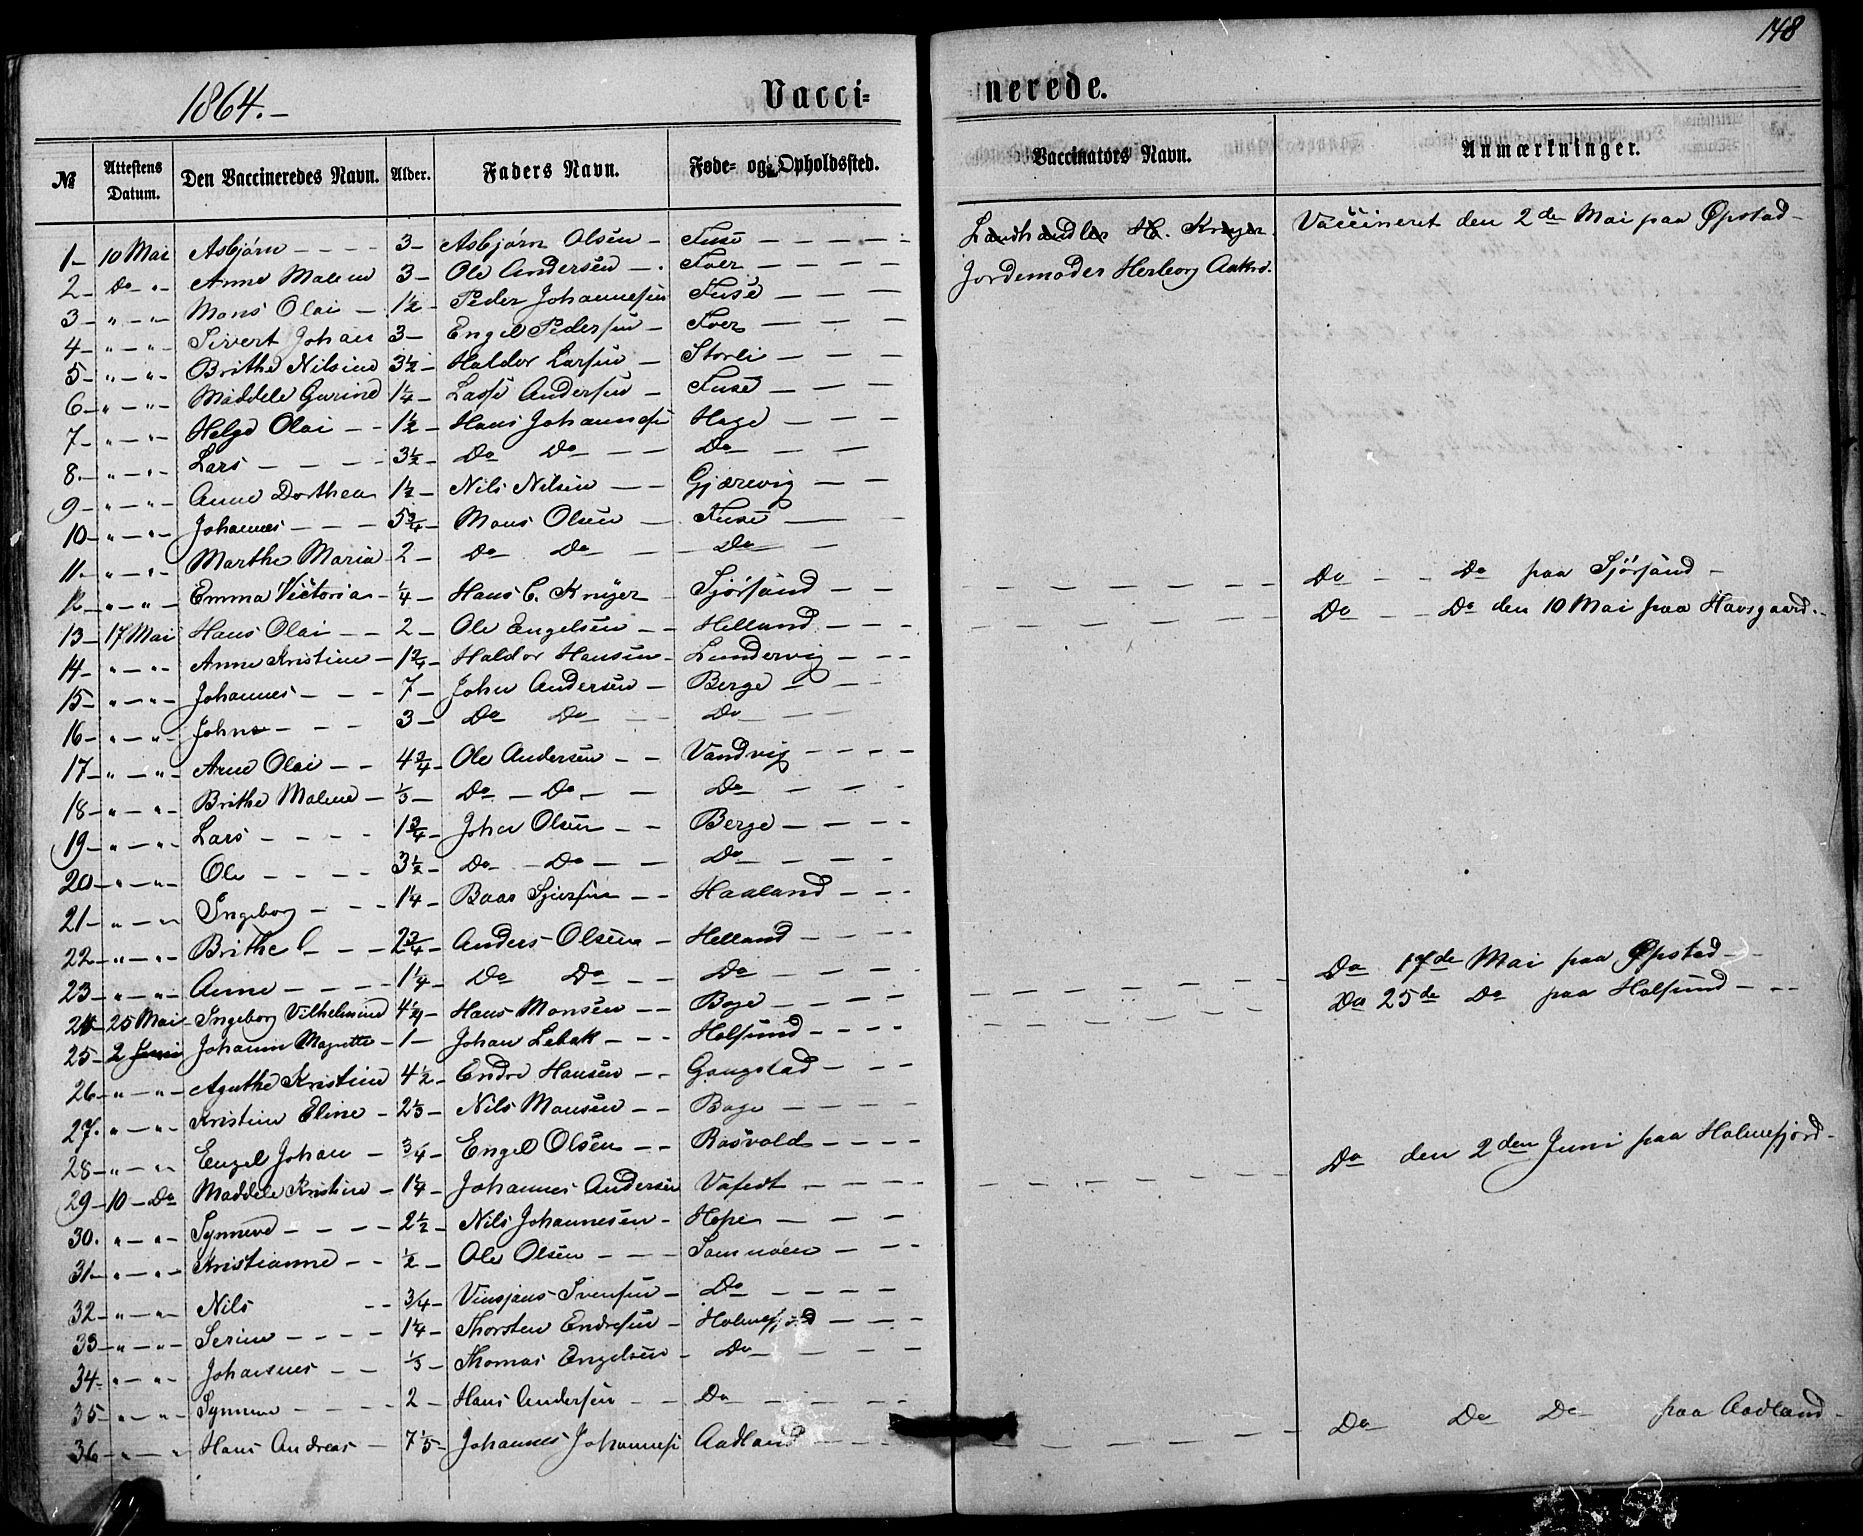 148
1864.-
Vacci-
nerede.
№
Attestens Datum.
Den Vaccineredes Navn.
Alder.
Faders Navn.
Føde- og Opholdssted.
Vaccinators Navn.
Anmærkninger.
1 - 10 Mai Asbjørn - - - - 3 - Asbjørn Olsen - Fuse - - - - Landhandler H. Kryger Vaccineret den 2de Mai paa Øpstad -
2 - Do " - Anne Malene 3 - Ole Andersen - . Tver - - - - Jordemoder Herborg
3 - " - " - Mons Olai - 1½ - Peder Johannesen Fuse - - -
4 - " - " - Sivert Johan 3 - Engel Pedersen - Tver - - -
5 - " - " - Brithe Nilsine 3½ - Haldor Larsen - Storli - - -
6 - " - " - Maddele Gurine 1¼ - Lasse Andersen - Fuse - - -
7 - " - " - Helge Olai - - 1½ - Hans Johannese Hage - - -
8 - " - " - Lars - - - - 3½ - Do Do - - Do - - -
9 - " - " - Anne Dorthea 1½ - Nils Nilsen - - Gjærevig - -
10 - " - " - Johannes - - - 5¾ - Mons Olsen - Fuse - -
11 - " - " - Marthe Maria 2 - Do Do - - Do -
12 - " - " - Emma Victoria - ¼ - Hans C. Krüger - Sjørsand - - - Do - - Do paa Sjørsand -
13 - 17 Mai Hans Olai - - 2 - Ole Engelsen - - Helland - - - Do - - Do den 10 Mai paa Havsgaard -
14 - " - " - Anne Kristine - 1¾ - Haldor Hansen - Lundervig - - -
15 - " - " - Johannes - - - 7 - John Andersen - Berge - - -
16 - " - " - Johns - - - 3 - Do Do - - Do - - -
17 - " - " - Arne Olai - - 4¾ - Ole Andersen - - Vandvig - - - -
18 - " - " - Brithe Malene - ⅓ - Do - Do - - Do - - - -
19 - " - " - Lars - - - - 1¾ - Johan Olsen - - Berge - - - -
20 - " - " - Ole - - - - 3½ - Do - Do - - Do - - - -
21 - " - " Ingeborg - - - 1¼ - Baar - Haaland - - -
22 - " - " - Brithe - - 2¾ - Anders Olsen - Helland - - - -
23 - " - " - Anne - - - - 1¼ Do Do - - Do - - - Do 17de Mai paa Øpstad - -
24 - 25 Mai - Ingeborg Vilhelmine 4½ - Hans Monsen - - Boge - - - - Do 25de Do paa Holsund - - -
25 - 2 Juni Johanne Magrette - 1 - Johan Lebak - - - Holsund - - - -
26 - " - " - Agathe Kristine 4½ - Endre Hansen - - Gangstad - - -
27. " - " - Kristine Eline - 2⅓ - Nils Monsen - - Boge - - - -
28 - " - " - Engel Johan - ¾ - Engel Olsen - - Rosvold - - - - Do den 2den Juni paa Holmefjord -
29 - 10 - Do Maddele Kristine - 1¼ - Johannes Andersen - - - -
30. " - " - Synneve - - - - 2½ - Nils Johannesen - Hope - - - -
31 - " - " - Kristianne - - ½ - Ole Olsen - - - Samnøen - - -
32 - " - " - Nils - - ¾ - Vinsjans Svensen - Do - - - -
33 - " - " - Serine - - - - 1¼ - Thorsten Endresen - Holmefjord - - -
34 - " - " - Johannes - - ⅓ - Thomas Engelsen - Do - - - -
35 - " - " - Synneve - - - - 2 - Hans Andersen - - Do - - - -
36 - " - " Hans Andreas - 7⅕ - Johannes Johannese Aadland - - - - Do Do Do paa Aadland -